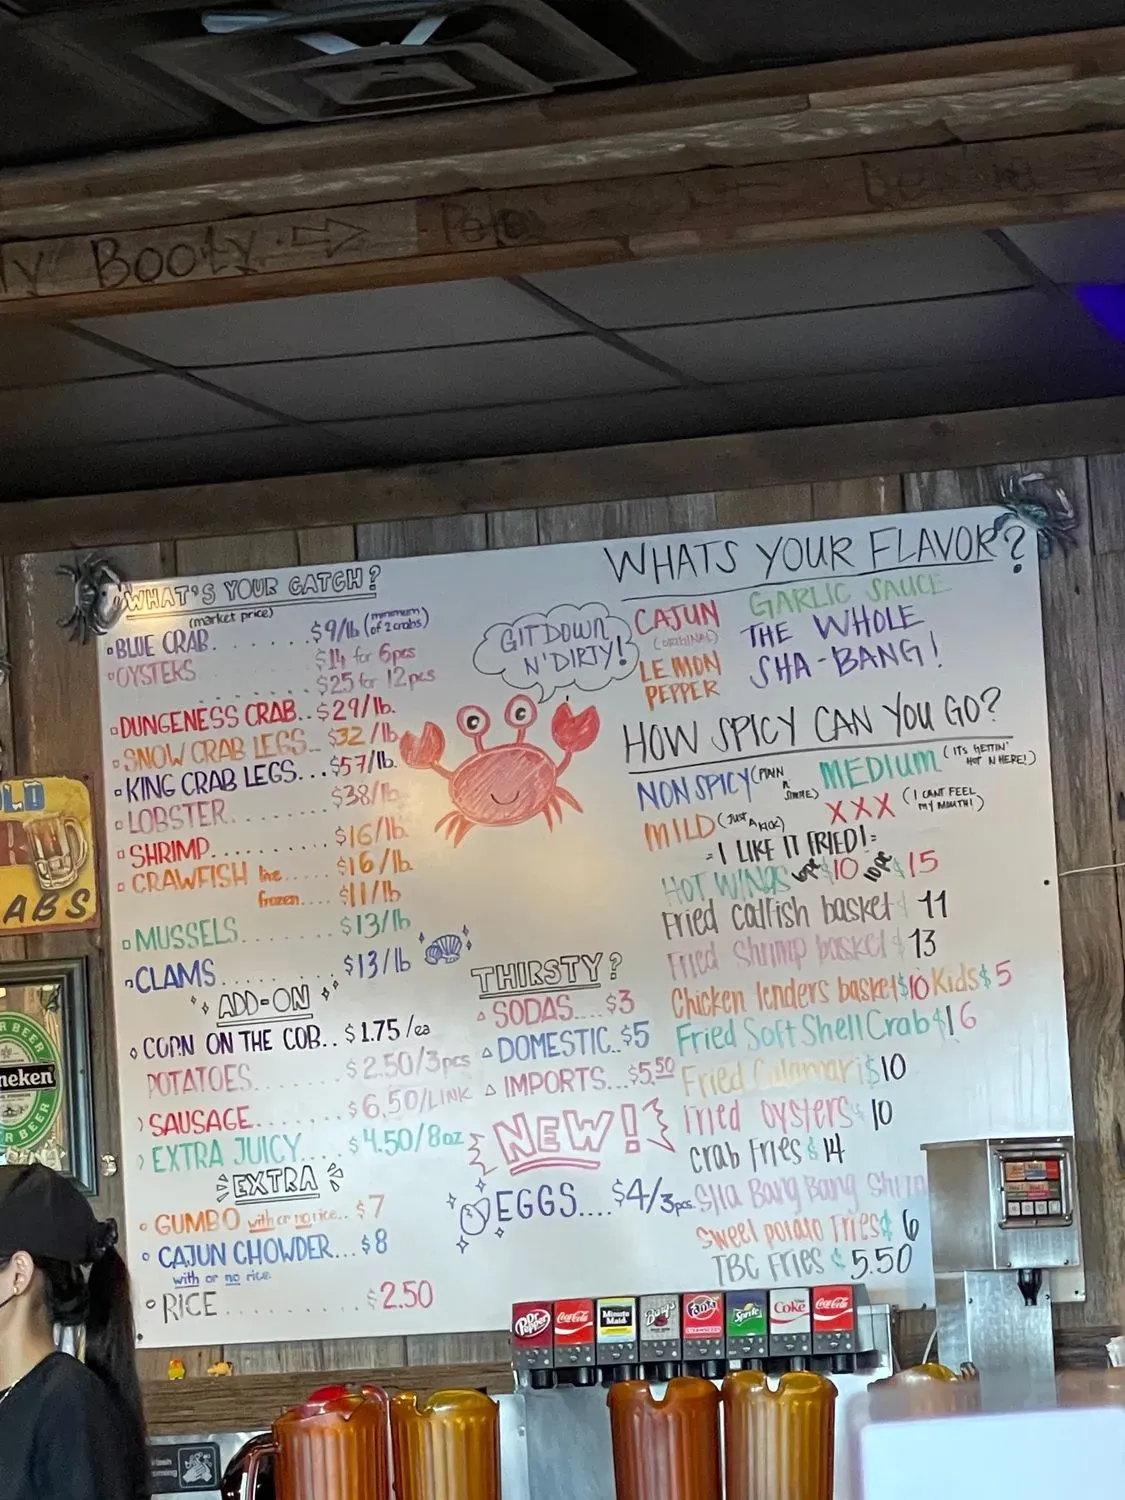 Booty
WHAT'S YOUR CATCH?
(market price)
BLUE CRAB....... $9/lb (minimum of 2 crabs)
OYSTERS $14 for 6pcs
........ $25 for 12pcs
DUNGENESS CRAB.. $29/lb.
SNOW CRAB LEGS... $32/lb
KING CRAB LEGS... $57/lb.
LOBSTER........ $38/lb
SHRIMP.......... $16/lb.
CRAWFISH live..... $16/lb.
frozen.... $11/lb
MUSSELS....... $13/lb
CLAMS ........ $13/lb
ADD-ON
CORN ON THE COB.. $1.75/ea
POTATOES....... $2.50/3pcs
SAUSAGE....... $6.50/LINK
EXTRA JUICY.... $4.50/8oz
EXTRA
GUMBO with or no rice.. $7
CAJUN CHOWDER... $8
with or no rice
RICE........... $2.50
GIT DOWN
N' DIRTY!
THIRSTY?
SODAS.... $3
DOMESTIC.. $5
IMPORTS... $5.50
NEW!
EGGS.... $4/3pcs
WHATS YOUR FLAVOR?
CAJUN
(ORIGINAL)
LEMON
PEPPER
GARLIC SAUCE
THE WHOLE
SHA-BANG!
HOW SPICY CAN YOU GO?
NON SPICY (PLAIN N SIMPLE)
MEDIUM (ITS GETTIN' HOT N HERE!)
MILD (JUST A KICK)
XXX (I CANT FEEL MY MOUTH!)
I LIKE IT FRIED!
HOT WINGS 6pc $10 10pc $15
Fried catfish basket $ 11
Fried Shrimp basket $ 13
Chicken tenders basket $10 Kids $5
Fried Soft Shell Crab $16
Fried Calamari $10
Fried oysters $ 10
crab Fries $ 14
Sha Bang Bang
Sweet potato Fries $ 6
TBC Fries $ 5.50
ABS
BEER
neken
BEER
Dr Pepper
Coca-Cola
Minute Maid
Barq's
Fanta
Sprite
Coke
Coca-Cola